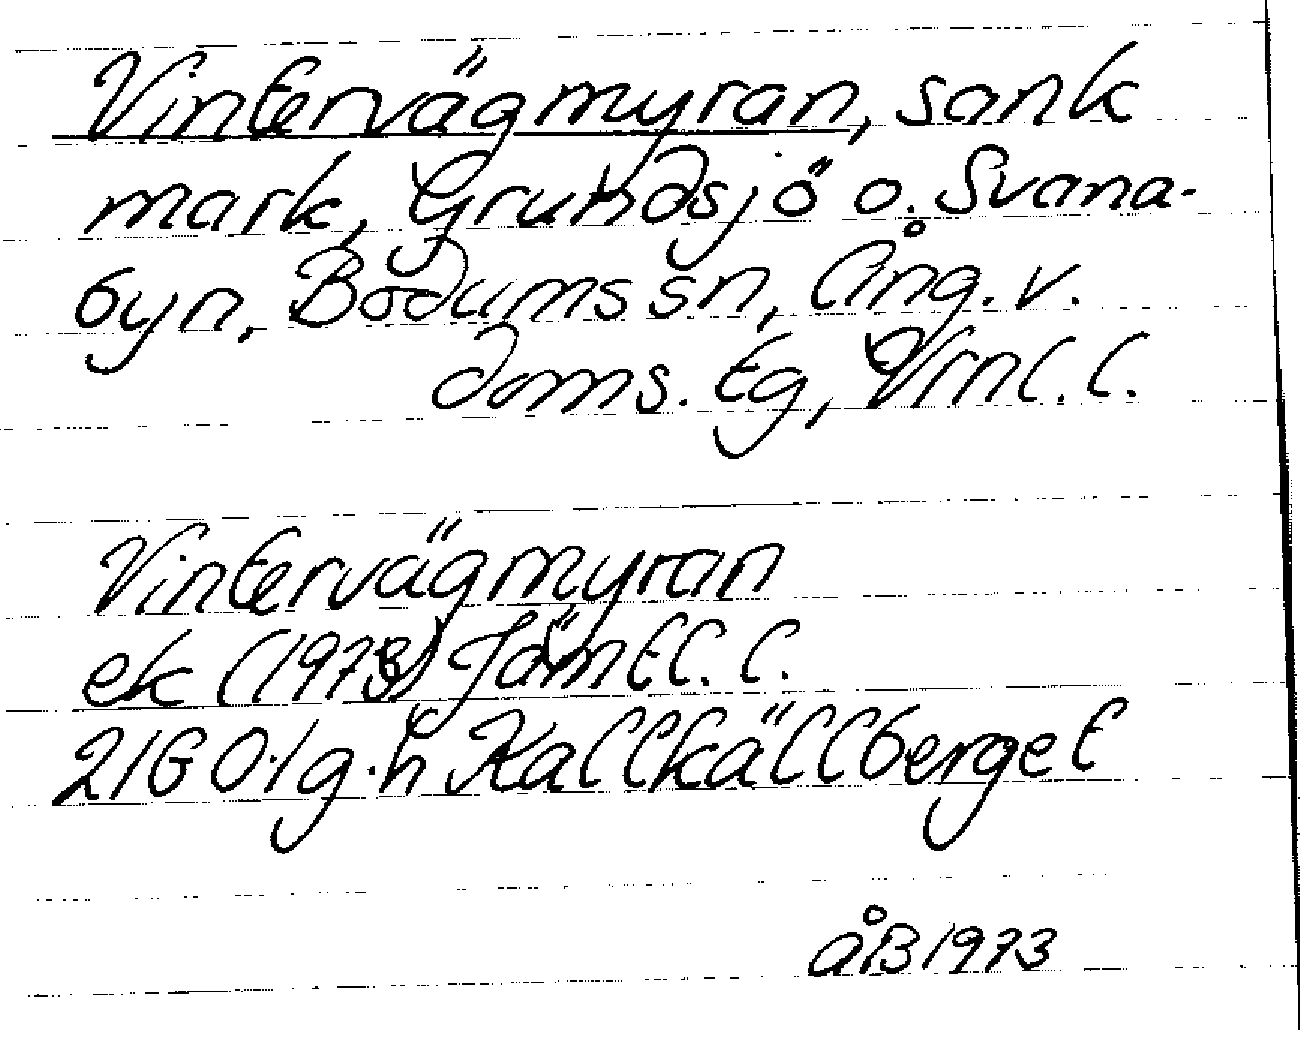 Vintervägmyran, sank
mark, Grundsjö o. Svana-
byn, Bodums sn, Ång. v.
doms. tg, Vrnl. l.
Vintervägmyran
ek (1973) Jämtl. l.
21G 0-1g.h Kallkällberget
ÅB 1973